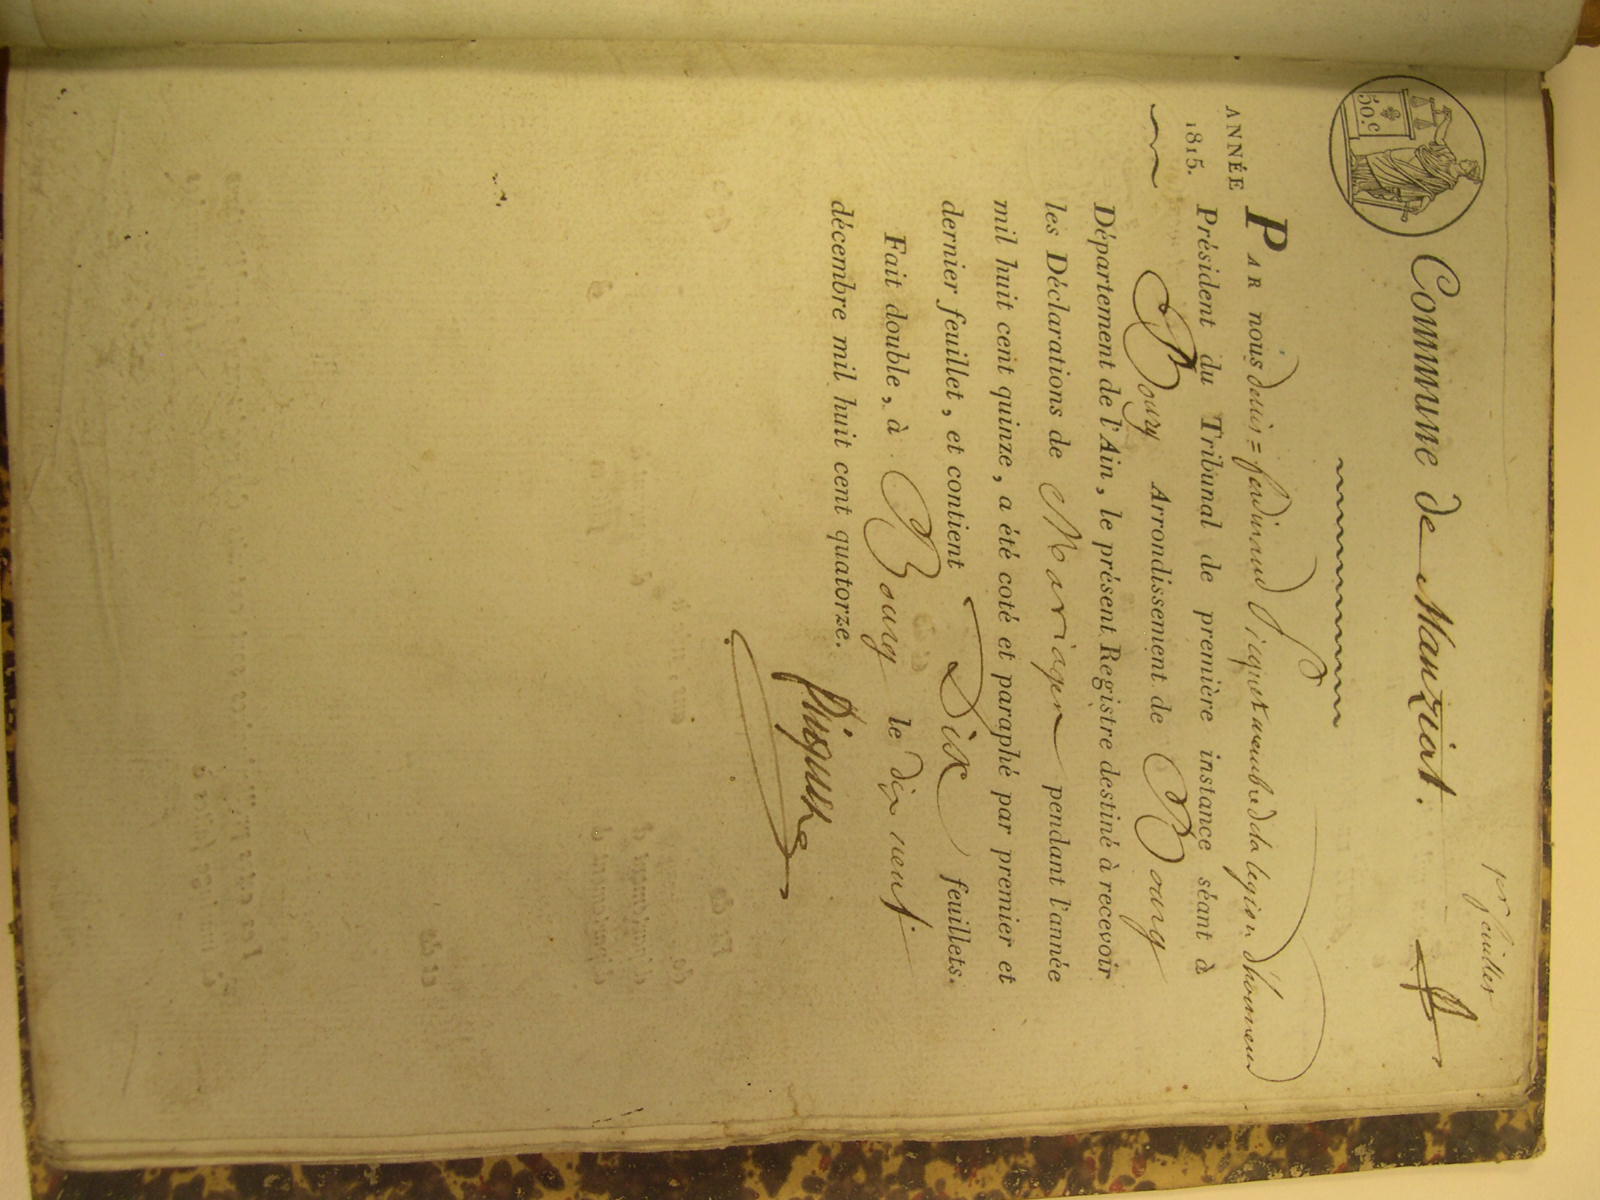 1er feuillet
50.c
Commune de Manziat.
ANNÉE
1815.
PAR nous Denis = ferdinand Picquet membre de la legion d'honneur
Président du Tribunal de première instance séant à
Bourg Arrondissement de Bourg
Département de l'Ain, le présent Registre destiné à recevoir
les Déclarations de Mariages pendant l'année
mil huit cent quinze, a été coté et paraphé par premier et
dernier feuillet, et contient Dix feuillets.
Fait double, à Bourg le dix neuf
décembre mil huit cent quatorze.
Picquet